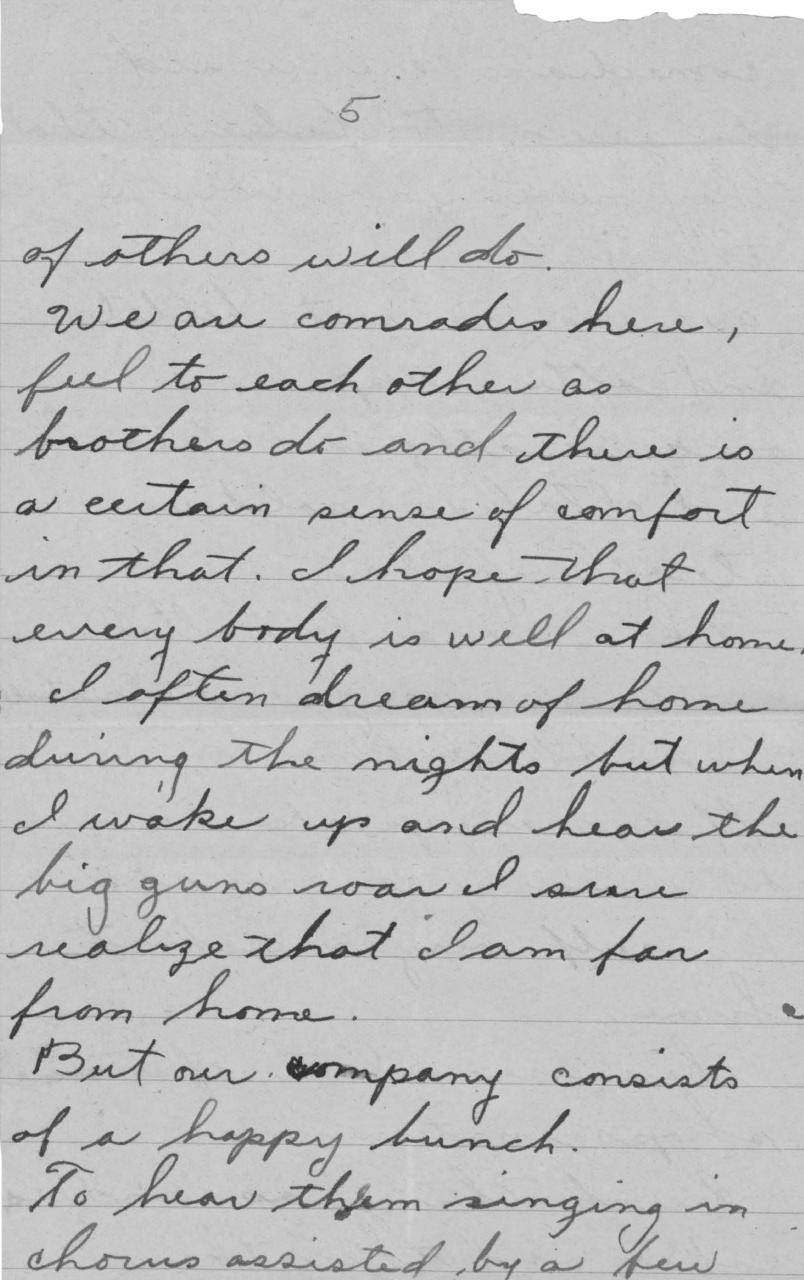 5
of others will do.
We are comrades here,
feel to each other as
brothers do and there is
a certain sense of comfort
in that. I hope that
every body is well at home.
I often dream of home
during the nights but when
I wake up and hear the
big guns roar I sure
realize that I am far
from home.
But our company consists
of a happy bunch.
To hear them singing in
chorus assisted by a few